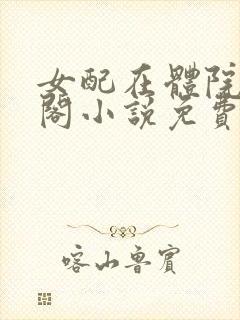 女配在體院
閣小說免費
喀山魯賓